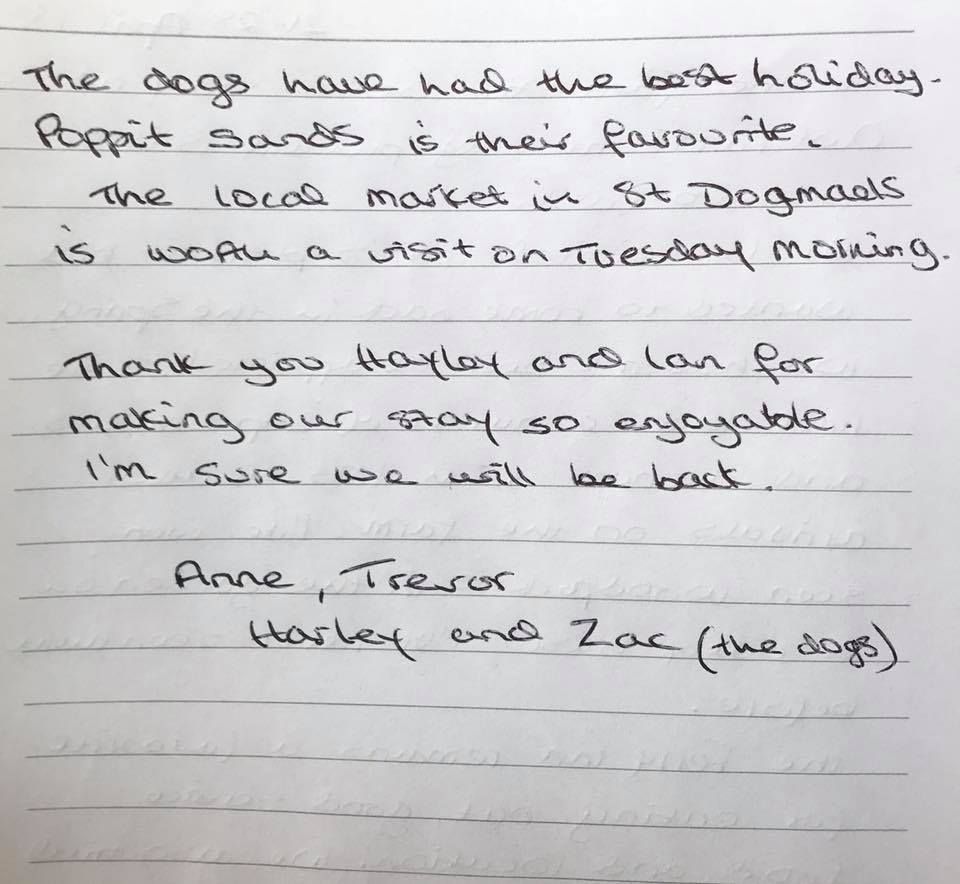 The dogs have had the best holiday.
Poppit Sands is their favourite.
The local market in St Dogmaels
is worth a visit on Tuesday morning.
Thank you Hayley and Ian for
making our stay so enjoyable.
I'm sure we will be back.
Anne, Trevor
Harley and Zac (the dogs)